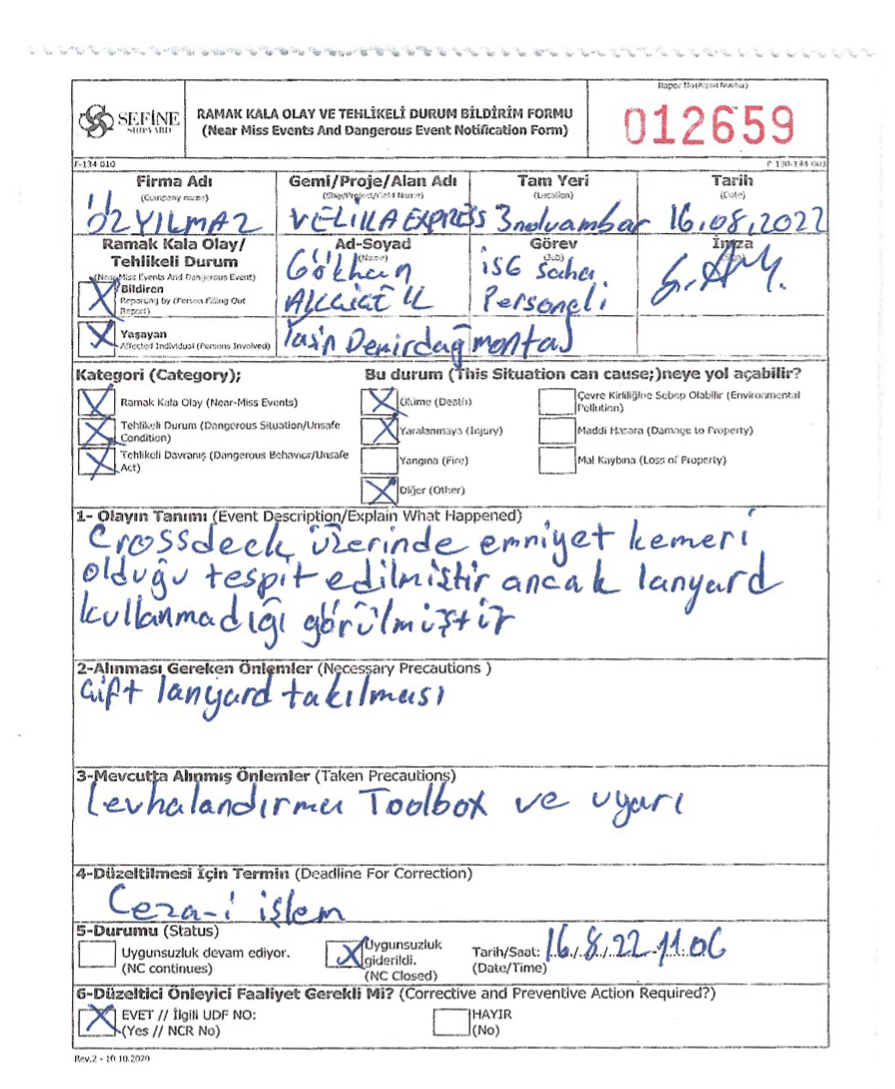 Rapor No(Report Number)
SEFİNE
SHIPYARD
RAMAK KALA OLAY VE TEHLİKELİ DURUM BİLDİRİM FORMU
(Near Miss Events And Dangerous Event Notification Form)
012659
F-134 010
P 130-134 003
Firma Adı
(Company name)
Gemi/Proje/Alan Adı
(Ship/Project/Field Name)
Tam Yeri
(Location)
Tarih
(Date)
ÖZYILMAZ
VELIKA EXPRESS
3noluambar
16,08,2022
Ramak Kala Olay/
Tehlikeli Durum
(Near Miss Events And Dangerous Event)
Ad-Soyad
(Name)
Görev
(Job)
İmza
Gökhan
iSG Saha
Personeli
G.AY.
Bildiren
Reporing by (Person Filling Out
Report)
Yaşayan
Affected Individusl (Persons Involved)
Yasin Demirdağ
montaj
Kategori (Category);
Bu durum (This Situation can cause;)neye yol açabilir?
Ramak Kala Olay (Near-Miss Events)
Ölüme (Death)
Çevre Kirliliğine Sebep Olabilir (Environmental
Pollution)
Tehlikeli Durum (Dangerous Situation/Unsafe
Condition)
Yaralanmaya (Injury)
Maddi Hasara (Damage to Property)
Tehlikeli Davranış (Dangerous Behavior/Unsafe
Act)
Yangına (Fire)
Mal Kaybına (Loss of Property)
Diğer (Other)
1- Olayın Tanımı (Event Description/Explain What Happened)
Crossdeck üzerinde emniyet kemeri
olduğu tespit edilmiştir ancak lanyard
kullanmadığı görülmüştür
2-Alınması Gereken Önlemler (Necessary Precautions )
Çift lanyard takılması
3-Mevcutta Alınmış Önlemler (Taken Precautions)
Levhalandırma Toolbox ve uyarı
4-Düzeltilmesi İçin Termin (Deadline For Correction)
Ceza-i işlem
5-Durumu (Status)
Uygunsuzluk devam ediyor.
(NC continues)
Uygunsuzluk
giderildi.
(NC Closed)
Tarih/Saat: 16./.8./.22.-11.06
(Date/Time)
6-Düzeltici Önleyici Faaliyet Gerekli Mi? (Corrective and Preventive Action Required?)
EVET // İlgili UDF NO:
(Yes // NCR No)
HAYIR
(No)
Rev.2 - 10 10.2020